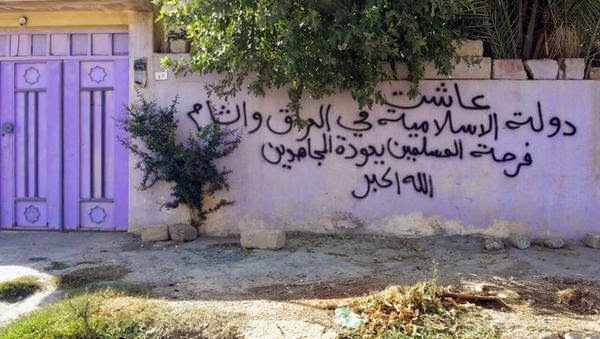 عاشت
دولة الاسلامية في العرق والشام
فرحة المسلمين بعودة المجاهدين
الله اكبر